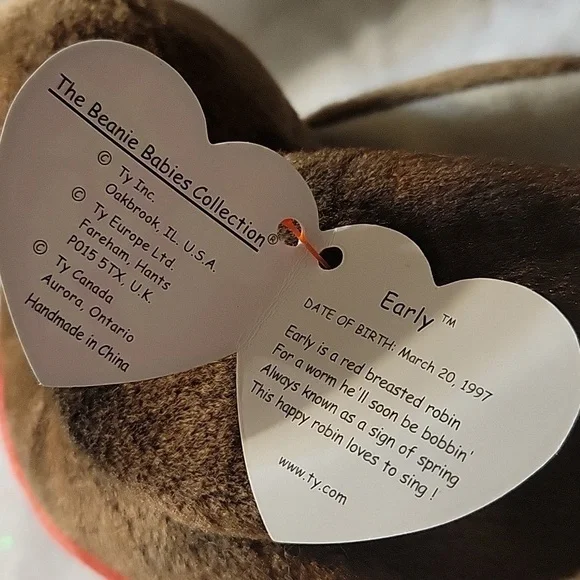 The Beanie Babies Collection®
© Ty Inc.
Oakbrook, IL. U.S.A.
© Ty Europe Ltd.
Fareham, Hants
PO15 5TX, U.K.
© Ty Canada
Aurora, Ontario
Handmade in China
Early ™
DATE OF BIRTH: March 20, 1997
Early is a red breasted robin
For a worm he'll soon be bobbin'
Always known as a sign of spring
This happy robin loves to sing !
www.ty.com